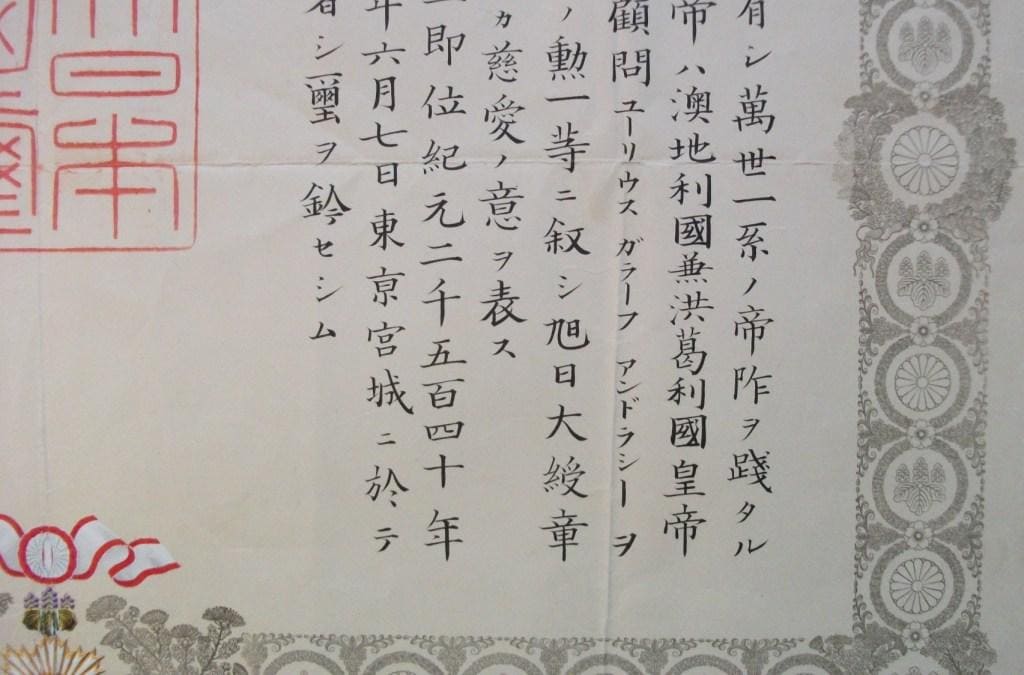 有シ萬世一系ノ帝阼ヲ踐タル
帝ハ澳地利國兼洪葛利國皇帝
顧問ユーリウスガラーフアンドラシーヲ
ノ勳一等ニ叙シ旭日大綬章
カ慈愛ノ意ヲ表ス
即位紀元二千五百四十年
年六月七日東京宮城ニ於テ
シ璽ヲ鈐セシム
日本